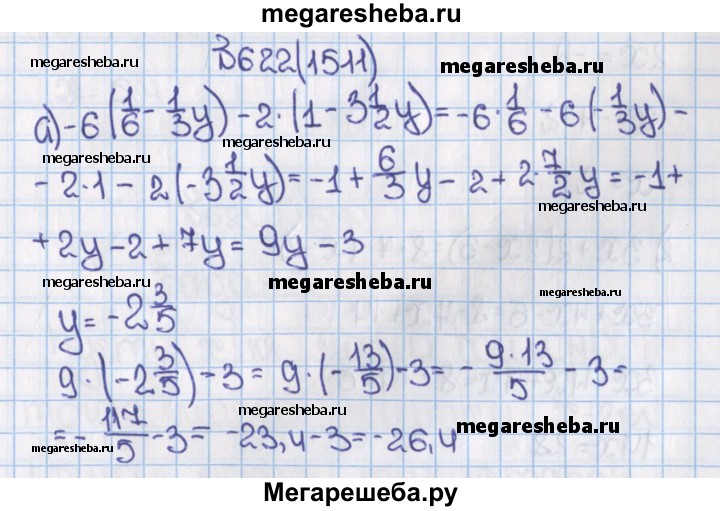 megaresheba.ru
З622(1511)
megaresheba.ru
megaresheba.ru
а) -6(1/6 - 1/3y) - 2·(1 - 3 1/2y) = -6·1/6 - 6(-1/3y) -
megaresheba.ru
- 2·1 - 2(-3 1/2y) = -1 + 6/3y - 2 + 2·7/2y = -1 +
megaresheba.ru
megaresheba.ru
+ 2y - 2 + 7y = 9y - 3
megaresheba.ru
megaresheba.ru
megaresheba.ru
y = -2 3/5
9·(-2 3/5) - 3 = 9·(-13/5) - 3 = -9·13/5 - 3 =
megaresheba.ru
megaresheba.ru
= -117/5 - 3 = -23,4 - 3 = -26,4
megaresheba.ru
Мегарешеба.ру